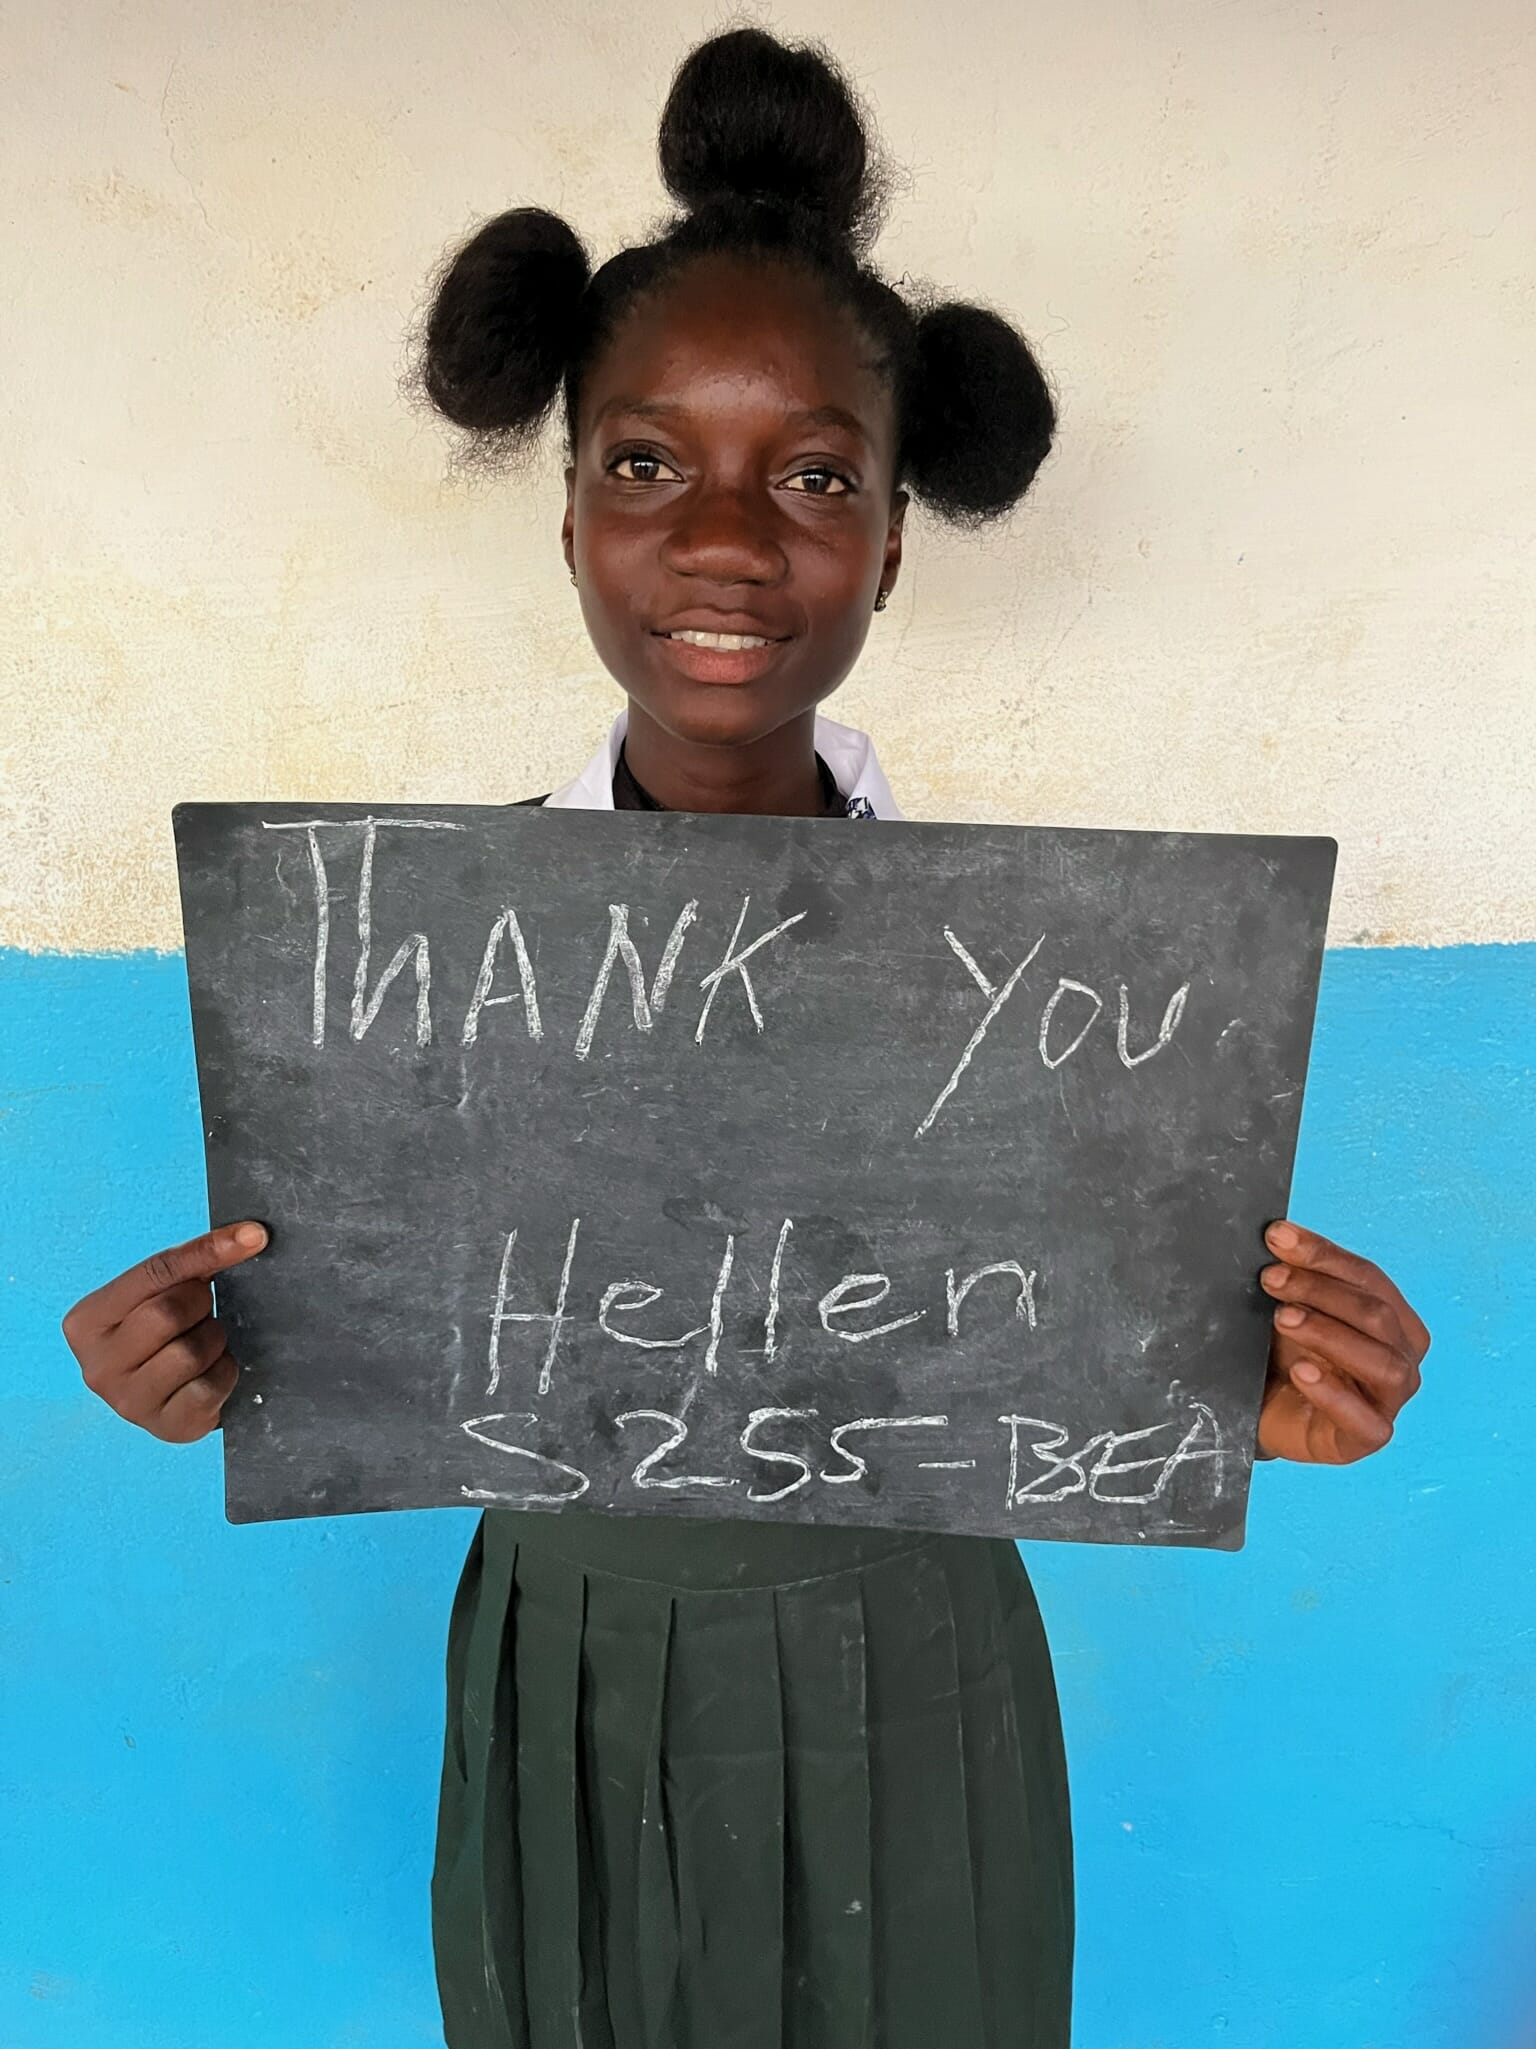 ThANK YOU
Hellen
S255-BEA